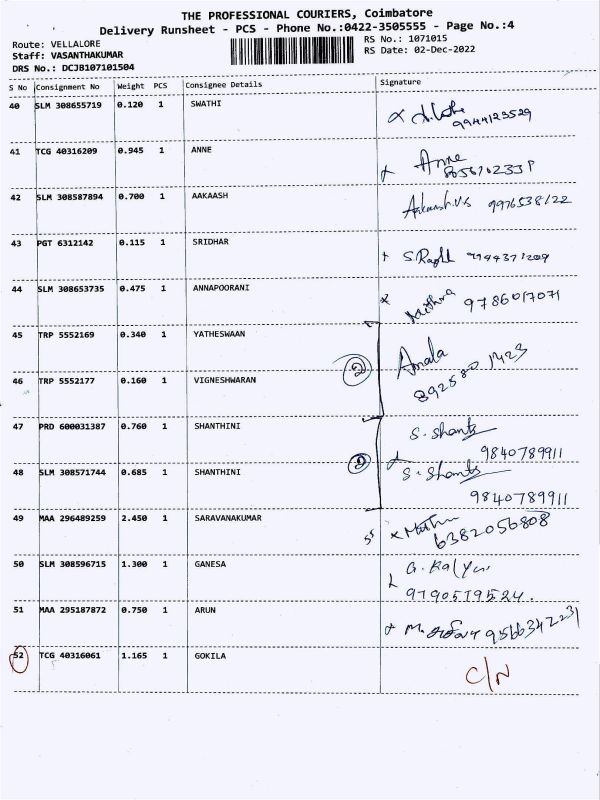 THE PROFESSIONAL COURIERS, Coimbatore
Delivery Runsheet - PCS - Phone No.:0422-3505555 - Page No.:4
Route: VELLALORE
RS No.: 1071015
Staff: VASANTHAKUMAR
RS Date: 02-Dec-2022
DRS No.: DCJB107101504
S No Consignment No Weight PCS Consignee Details Signature
40 SLM 308655719 0.120 1 SWATHI
9944123529
41 TCG 40316209 0.945 1 ANNE Anne
42 SLM 308587894 0.700 1 AAKAASH 9976538122
43 PGT 6312142 0.115 1 SRIDHAR
44 SLM 308653735 0.475 1 ANNAPOORANI 9786017071
45 TRP 5552169 0.340 1 YATHESWAAN
② Amala
892580 1423
46 TRP 5552177 0.160 1 VIGNESHWARAN
47 PRD 600031387 0.760 1 SHANTHINI S. Shants
9840789911
②
48 SLM 308571744 0.685 1 SHANTHINI S. Shants
9840789911
49 MAA 296489259 2.450 1 SARAVANAKUMAR
6382056808
50 SLM 308596715 1.300 1 GANESA
9790519524.
51 MAA 295187872 0.750 1 ARUN
52 TCG 40316061 1.165 1 GOKILA
C/N